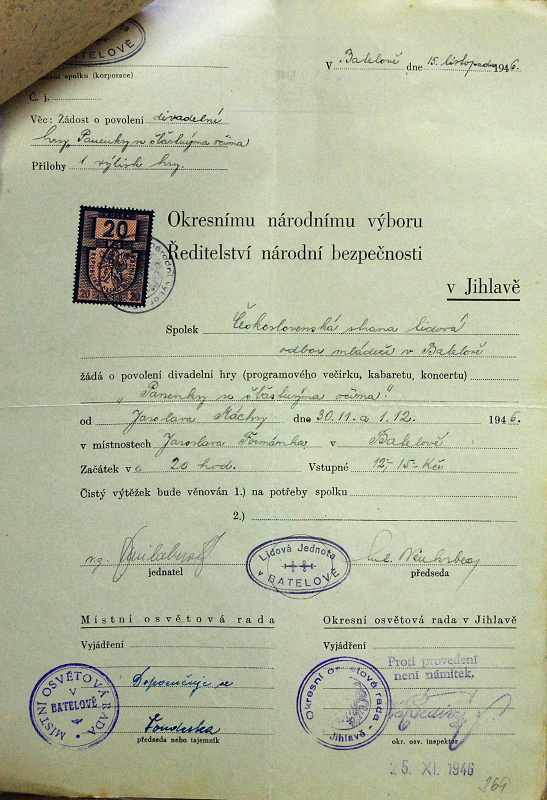 BATELOVĚ
V Batelově dne 15. listopadu 1946.
spolku (korporace)
Č. j.
Věc: Žádost o povolení divadelní
hry, Panenky se šťastnýma očima
Přílohy 1 výtisk hry.
20
20 20
Okresnímu národnímu výboru
Ředitelství národní bezpečnosti
v Jihlavě
Spolek Československá strana lidová
odbor mládeže v Batelově
žádá o povolení divadelní hry (programového večírku, kabaretu, koncertu)
„Panenky se šťastnýma očima."
od Jaroslava Máchy dne 30.11. a 1.12. 1946.
v místnostech Jaroslava Formánka v Batelově
Začátek v 20 hod. Vstupné 12,- 15- Kčs
Čistý výtěžek bude věnován 1.) na potřeby spolku
2.)
Lidová Jednota
v BATELOVĚ
jednatel předseda
Místní osvětová rada
Vyjádření
Doporučuje se
MÍSTNÍ OSVĚTOVÁ RADA
V
BATELOVĚ
předseda nebo tajemník
Okresní osvětová rada v Jihlavě
Vyjádření
Proti provedení
není námitek,
Okresní osvětová rada
v Jihlavě
okr. osv. inspektor
25. XI. 1946